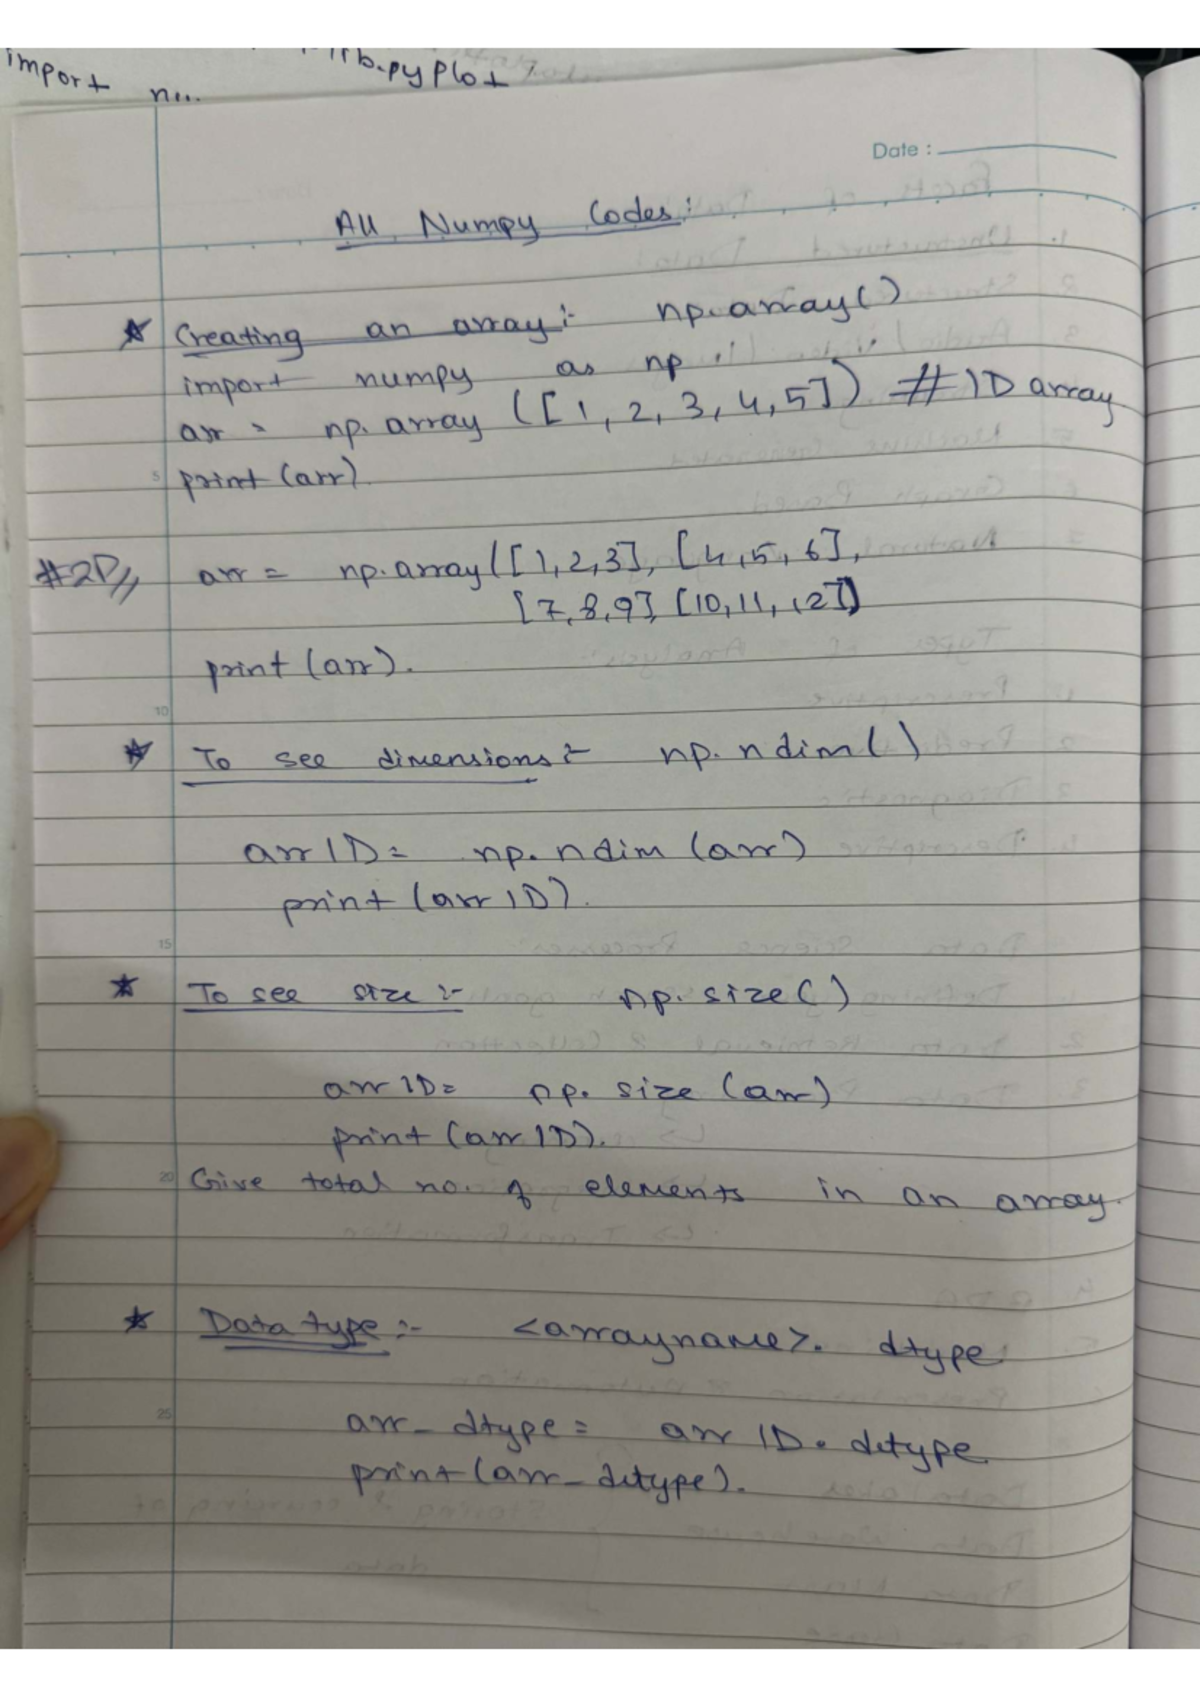 import
lib.pyplot
Date :
All Numpy Codes:
Creating an array:- np.array()
import numpy as np
arr = np.array ([1, 2, 3, 4, 5]) # 1D array
5
print (arr)
#2D// arr = np.array([1,2,3], [4,5,6],
[7,8,9] [10,11,12])
print (arr).
10
To see dimensions:- np.ndim()
arr1D= np.ndim (arr)
print (arr1D).
15
To see size:- np.size()
arr1D= np.size (arr)
print (arr1D).
20
Give total no. of elements in an array.
Data type:- <arrayname>. dtype
25
arr_dtype= arr1D.dtype
print(arr_dtype).